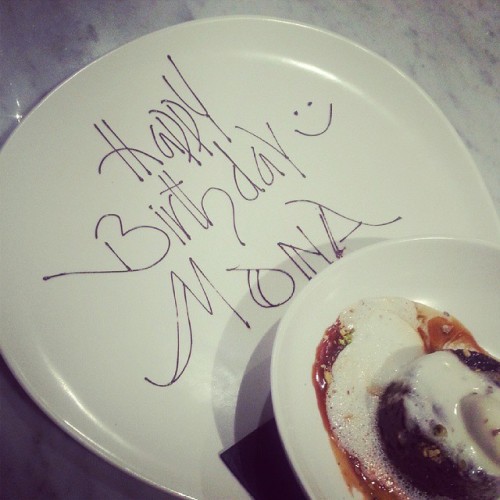 Happy
Birthday :)
MONA